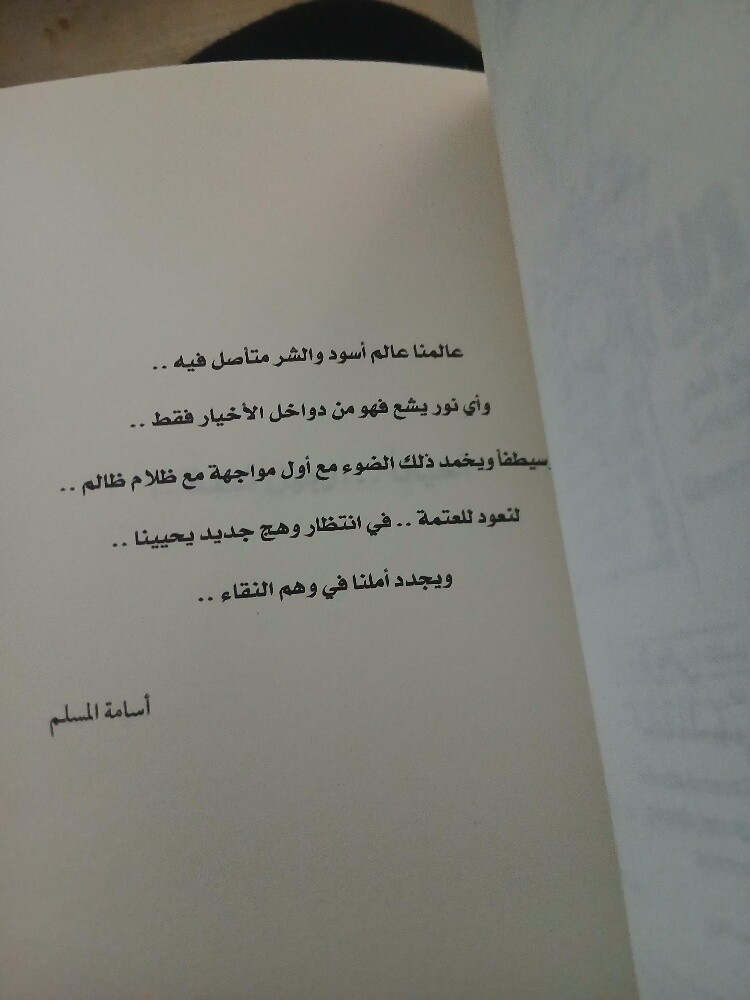 عالمنا عالم أسود والشر متأصل فيه ..
وأي نور يشع فهو من دواخل الأخيار فقط ..
وسيطفأ ويخمد ذلك الضوء مع أول مواجهة مع ظلام ظالم ..
لتعود للعتمة .. في انتظار وهج جديد يحيينا ..
ويجدد أملنا في وهم النقاء ..
أسامة المسلم